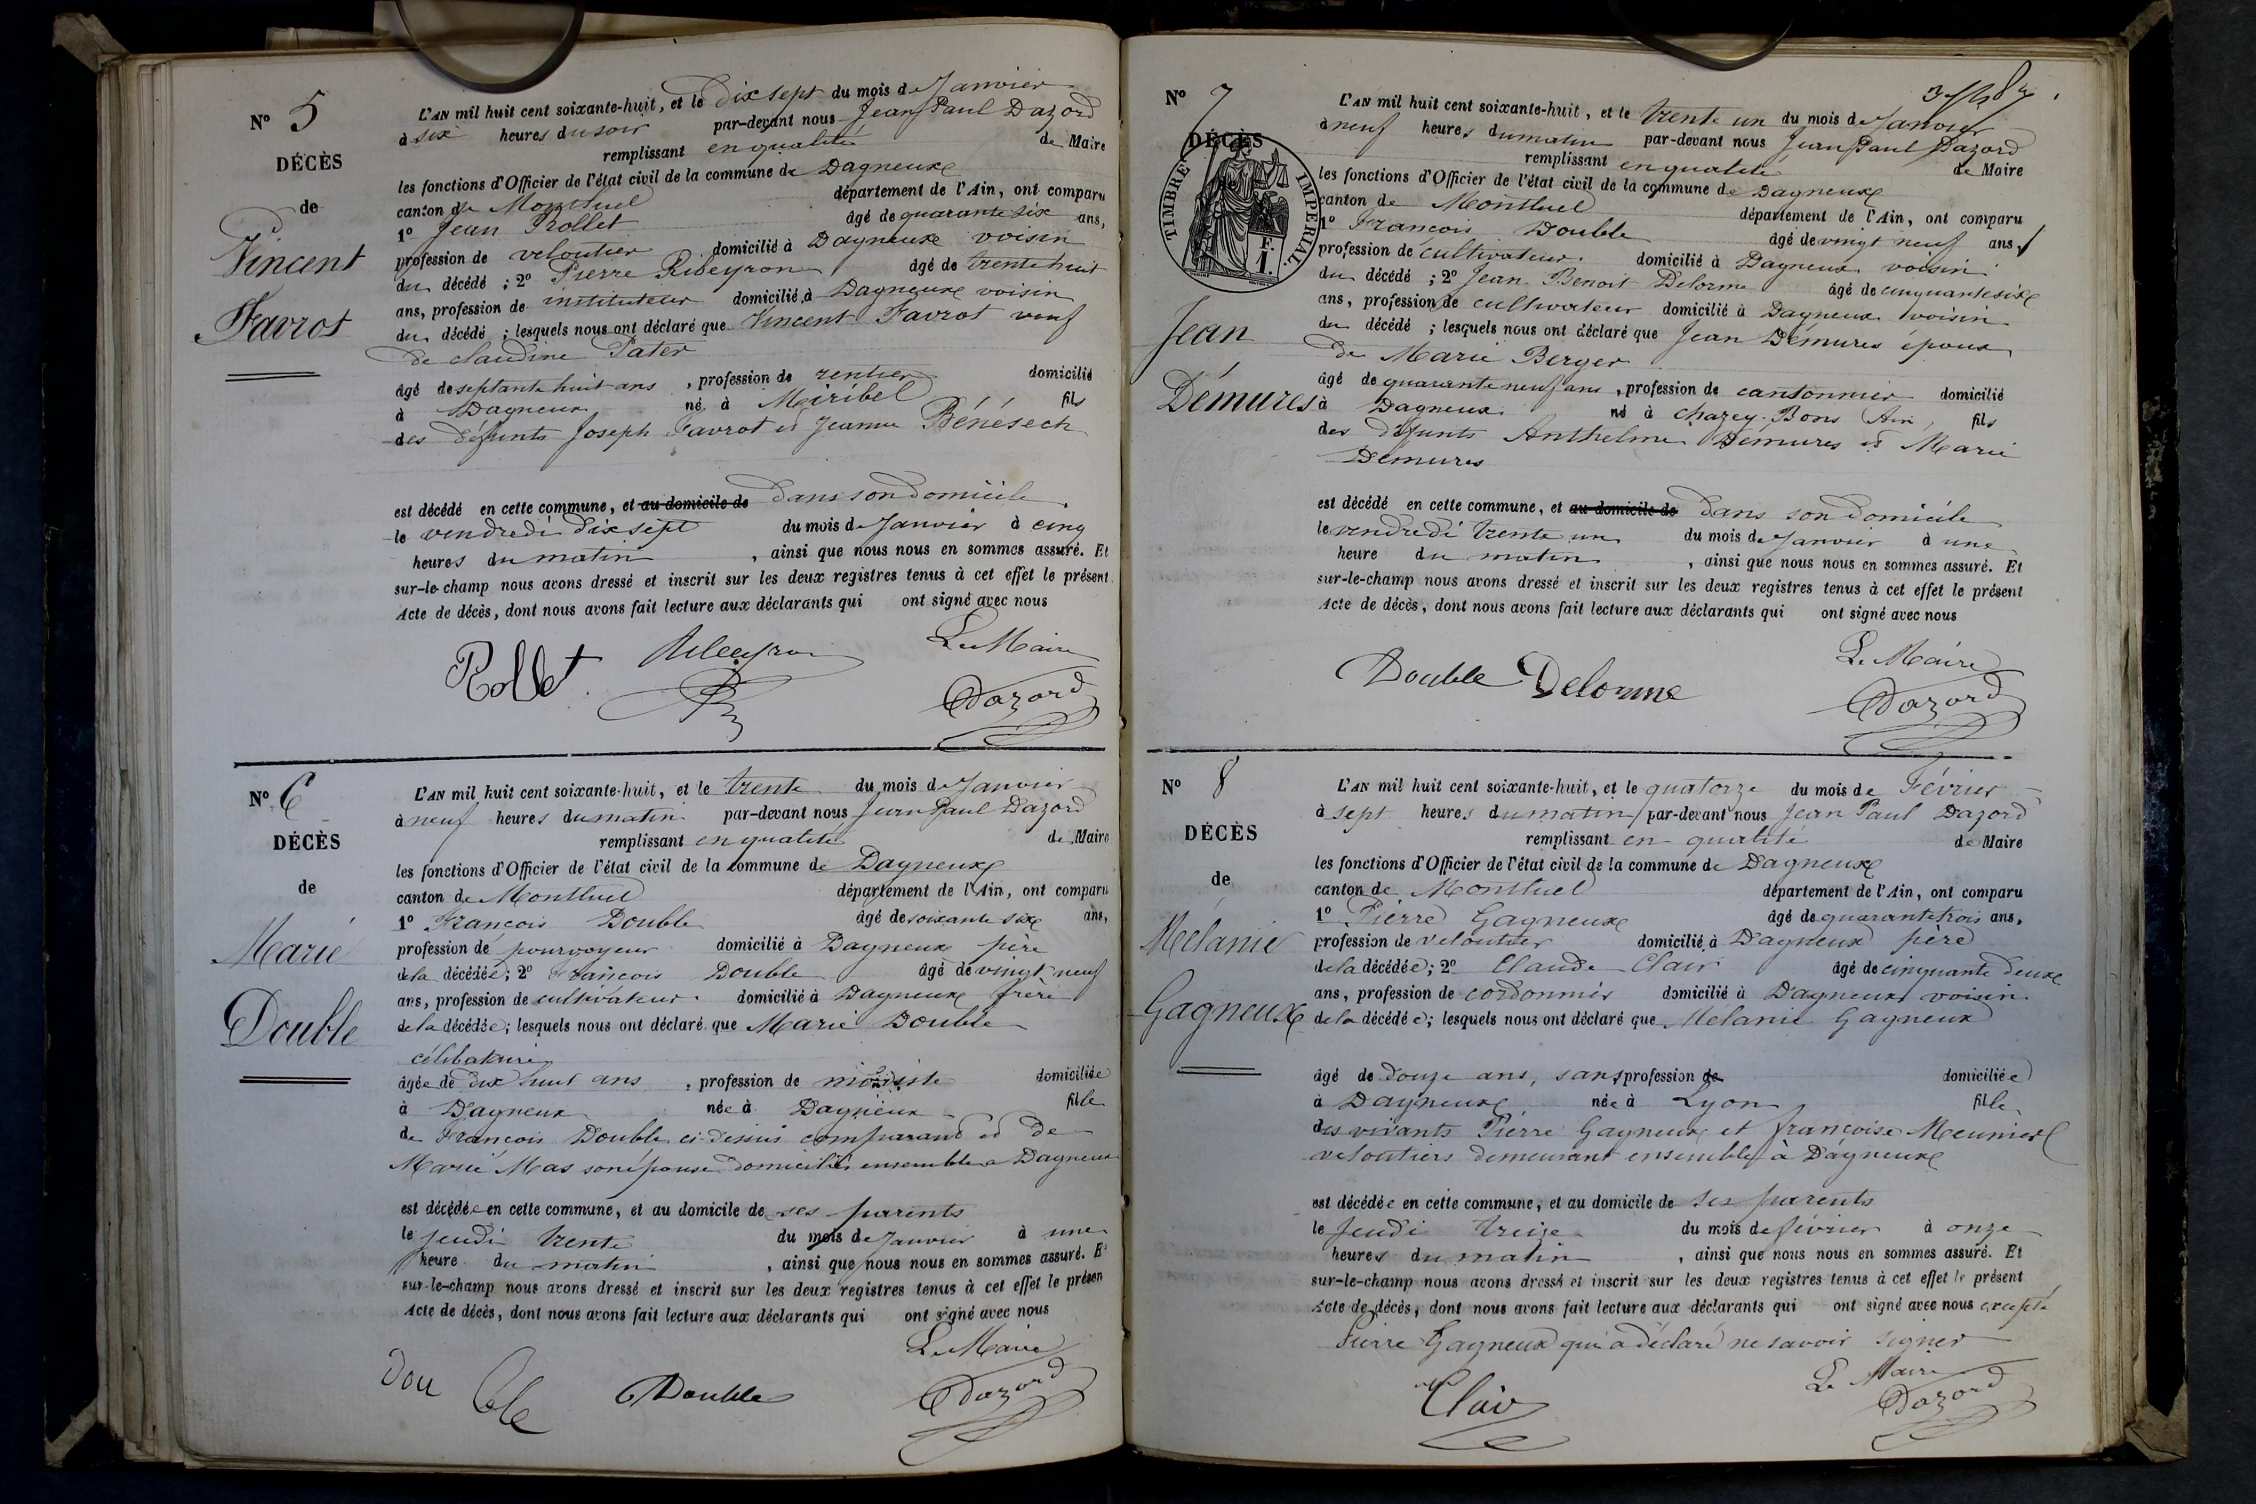 N° 5
DÉCÈS
de
Vincent
Favrot
L'AN mil huit cent soixante-huit, et le dix sept du mois de Janvier
à six heures du soir par-devant nous Jean Paul Dazord
remplissant en qualité de Maire
les fonctions d'Officier de l'état civil de la commune de Dagneux
canton de Montluel département de l'Ain, ont comparu
1° Jean Rollet âgé de quarante six ans,
profession de veloutier domicilié à Dagneux voisin
du décédé ; 2° Pierre Ribeyron âgé de trente huit
ans, profession de instituteur domicilié à Dagneux voisin
du décédé ; lesquels nous ont déclaré que Vincent Favrot veuf
de claudine Pater
âgé de septante huit ans , profession de rentier domicilié
à Dagneux né à Miribel fils
des défunts Joseph Favrot et Jeanne Bénésech
est décédé en cette commune, et au domicile de dans son domicile
le vendredi dix sept du mois de Janvier à cinq
heures du matin , ainsi que nous nous en sommes assuré. Et
sur-le-champ nous avons dressé et inscrit sur les deux registres tenus à cet effet le présent
Acte de décès, dont nous avons fait lecture aux déclarants qui ont signé avec nous
Le Maire
Rollet Ribeyron
Dazord
N° 6
DÉCÈS
de
Marie
Double
L'AN mil huit cent soixante-huit, et le trente du mois de Janvier
à neuf heures du matin par-devant nous Jean Paul Dazord
remplissant en qualité de Maire
les fonctions d'Officier de l'état civil de la commune de Dagneux
canton de Montluel département de l'Ain, ont comparu
1° François Double âgé de soixante six ans,
profession de pourvoyeur domicilié à Dagneux père
de la décédée ; 2° François Double âgé de vingt neuf
ans, profession de cultivateur domicilié à Dagneux frère
de la décédée ; lesquels nous ont déclaré que Marie Double
célibataire
âgée de dix huit ans , profession de domiciliée
à Dagneux née à Dagneux fille
de François Double ci-dessus comparant et de
Marie Mas son épouse domiciliés ensemble à Dagneux
est décédée en cette commune, et au domicile de ses parents
le jeudi trente du mois de Janvier à une
heure du matin , ainsi que nous nous en sommes assuré. Et
sur-le-champ nous avons dressé et inscrit sur les deux registres tenus à cet effet le présen
Acte de décès, dont nous avons fait lecture aux déclarants qui ont signé avec nous
Le Maire
Dou ble Double Dazord
N° 7
DÉCÈS
TIMBRE IMPERIAL.
F.
1.
Jean
Démures
L'AN mil huit cent soixante-huit, et le trente un du mois de Janvier
à neuf heures du matin par-devant nous Jean Paul Dazord
remplissant en qualité de Maire
les fonctions d'Officier de l'état civil de la commune de Dagneux
canton de Montluel département de l'Ain, ont comparu
1° François Double âgé de vingt neuf ans,
profession de cultivateur domicilié à Dagneux voisin
du décédé ; 2° Jean Benoit Delorme âgé de cinquante six
ans, profession de cultivateur domicilié à Dagneux voisin
du décédé ; lesquels nous ont déclaré que Jean Démures époux
de Marie Berger
âgé de quarante neuf ans , profession de cantonnier domicilié
à Dagneux né à Chazey-Bons Ain, fils
des défunts Anthelme Démures et Marie
Démures
est décédé en cette commune, et au domicile de dans son domicile
le vendredi trente un du mois de Janvier à une
heure du matin , ainsi que nous nous en sommes assuré. Et
sur-le-champ nous avons dressé et inscrit sur les deux registres tenus à cet effet le présent
Acte de décès, dont nous avons fait lecture aux déclarants qui ont signé avec nous
Le Maire
Double Delorme Dazord
N° 8
DÉCÈS
de
Mélanie
Gagneux
L'AN mil huit cent soixante-huit, et le quatorze du mois de Février
à sept heures du matin par-devant nous Jean Paul Dazord
remplissant en qualité de Maire
les fonctions d'Officier de l'état civil de la commune de Dagneux
canton de Montluel département de l'Ain, ont comparu
1° Pierre Gagneux âgé de quarante trois ans,
profession de veloutier domicilié à Dagneux père
de la décédée ; 2° Claude Clair âgé de cinquante deux
ans, profession de cordonnier domicilié à Dagneux voisin
de la décédée ; lesquels nous ont déclaré que Mélanie Gagneux
âgé de douze ans, sans profession de domiciliée
à Dagneux née à Lyon fille
des vivants Pierre Gagneux et françoise Meunier
veloutiers demeurant ensemble à Dagneux
est décédée en cette commune, et au domicile de ses parents
le Jeudi treize du mois de février à onze
heures du matin , ainsi que nous nous en sommes assuré. Et
sur-le-champ nous avons dressé et inscrit sur les deux registres tenus à cet effet le présent
Acte de décès, dont nous avons fait lecture aux déclarants qui ont signé avec nous excepté
Pierre Gagneux qui a déclaré ne savoir signer
Le Maire
Clair Dazord